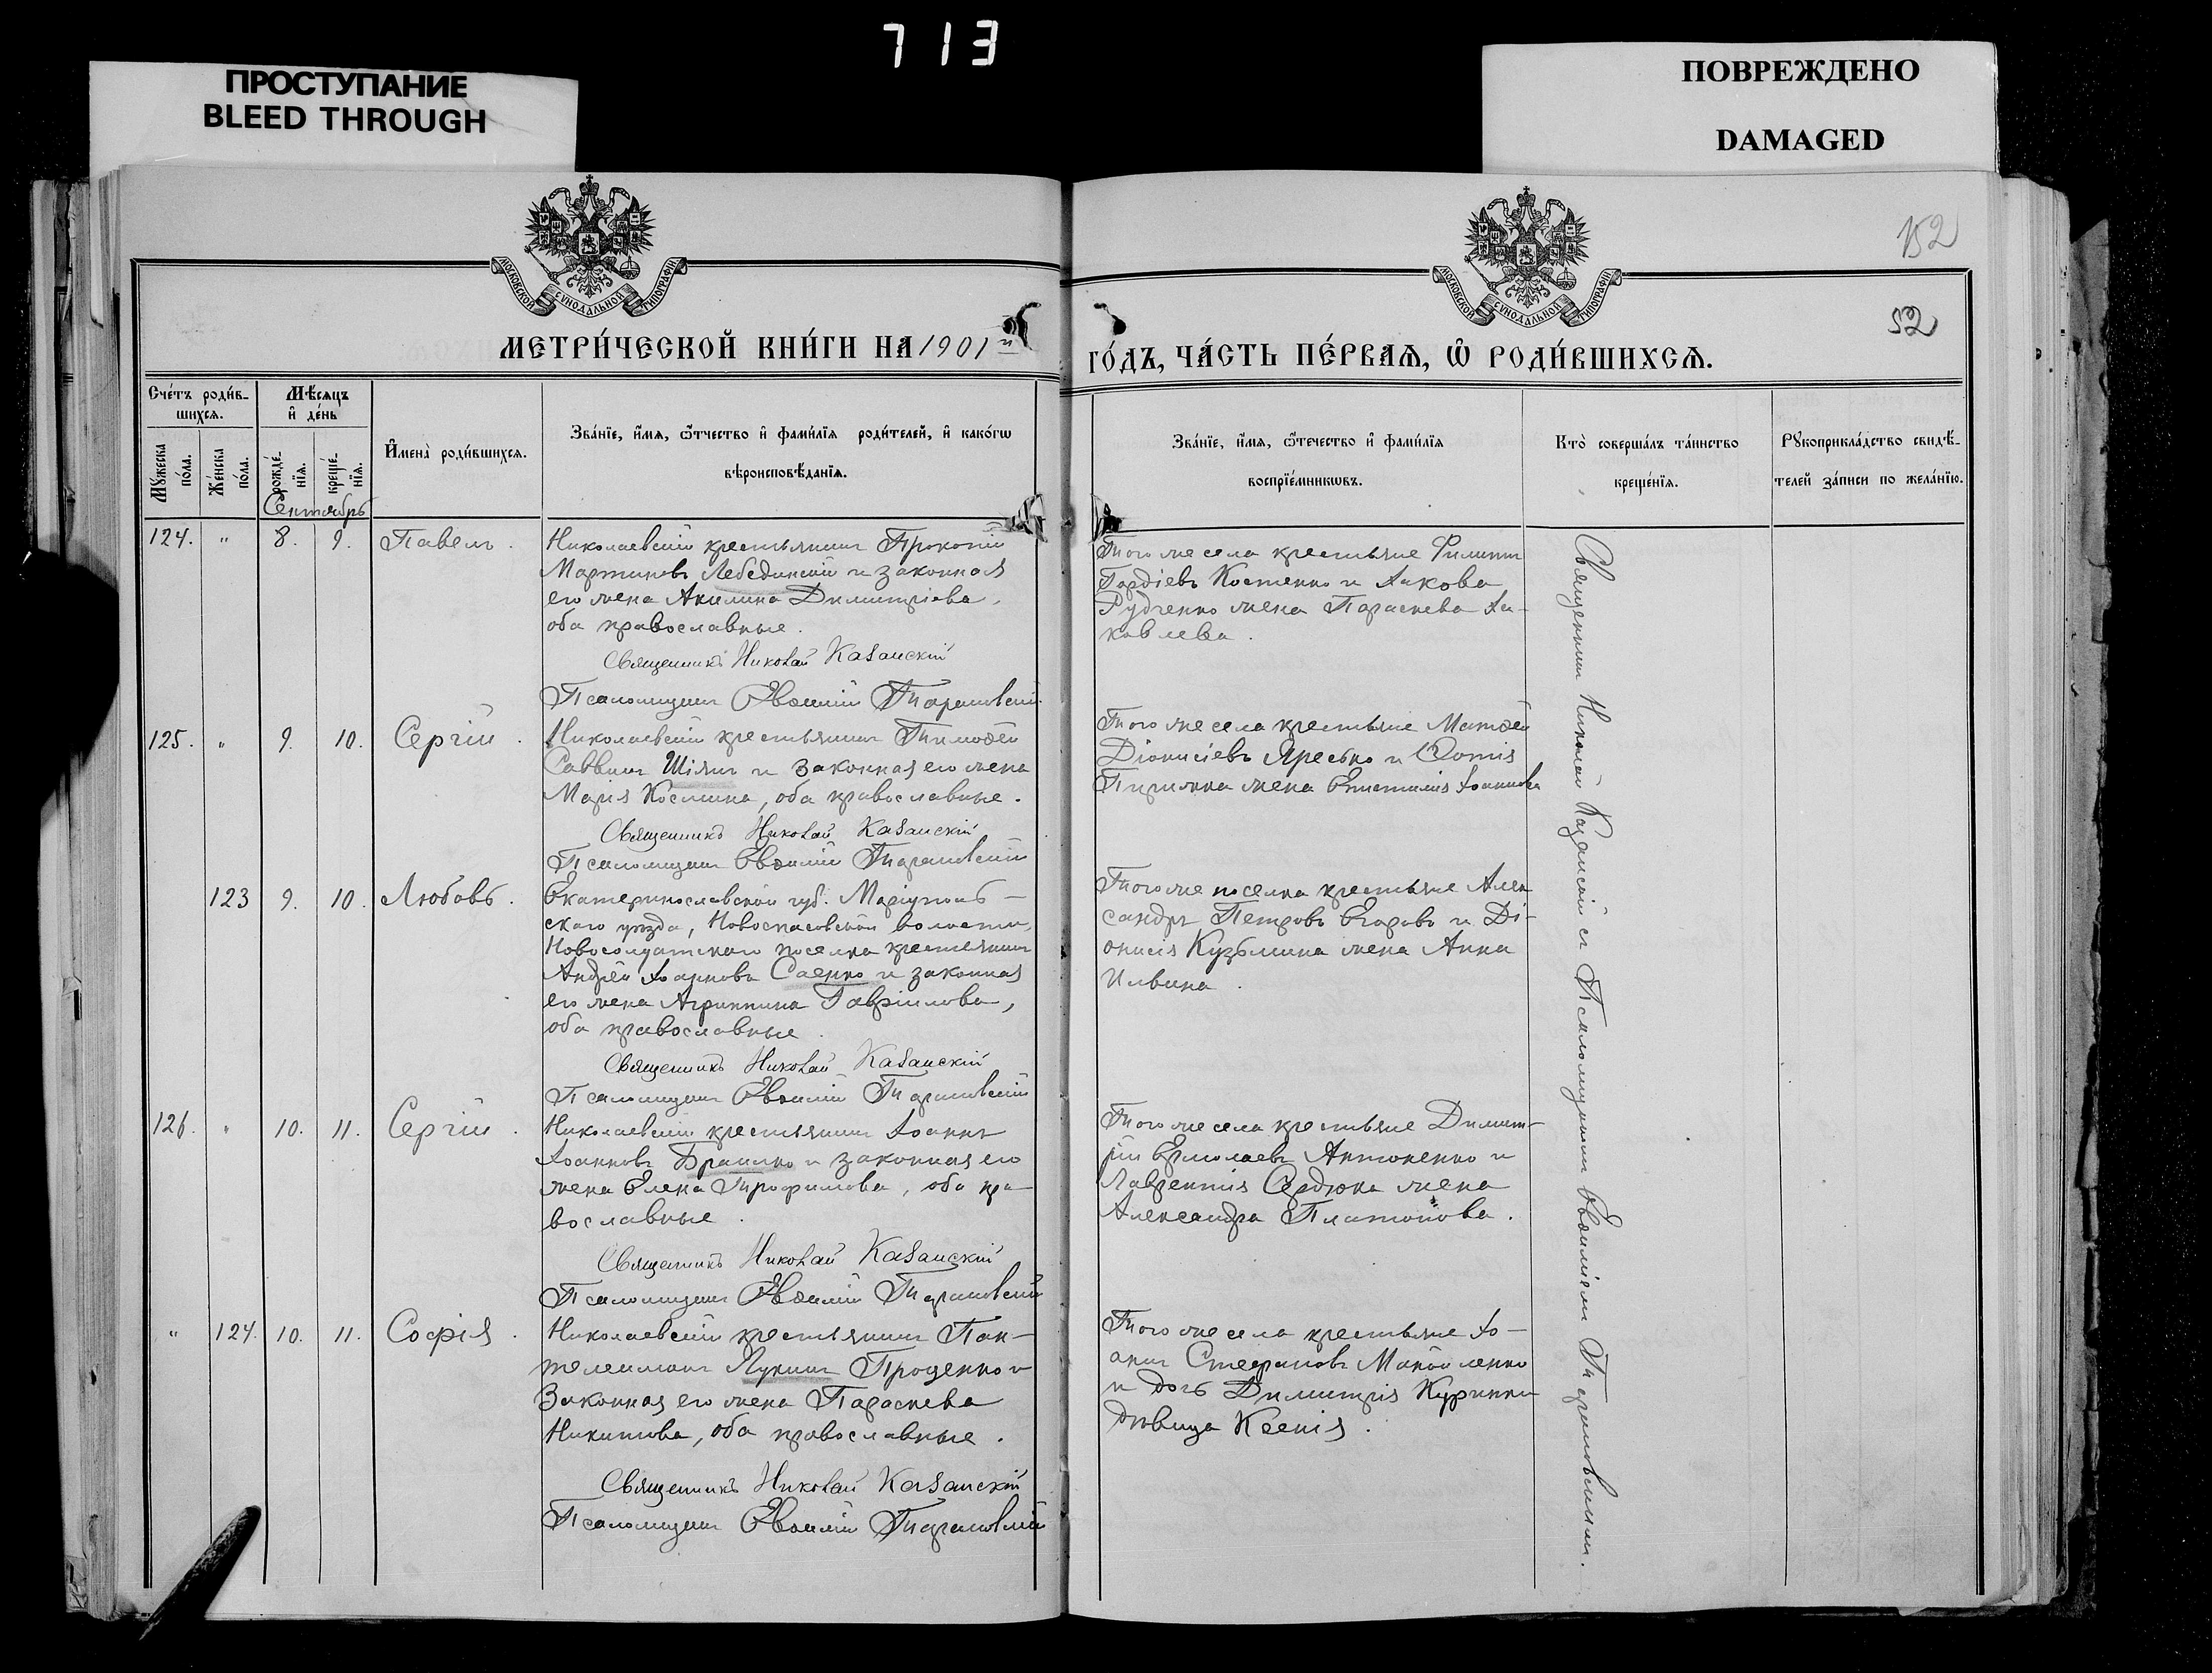 713
ПРОСТУПАНИЕ
BLEED THROUGH
ПОВРЕЖДЕНО
DAMAGED
152
52
МОСКОВСКОЙ СѴНОДАЛЬНОЙ ТИПОГРАФІИ
МОСКОВСКОЙ СѴНОДАЛЬНОЙ ТИПОГРАФІИ
МЕТРИ́ЧЕСКОЙ КНИ́ГИ НА 1901 й
ГО́ДЪ, ЧА́СТЬ ПЕ́РВАѦ, Ѽ РОДИ́ВШИХСѦ.
Сче́тъ роди́в-
шихсѧ.
Мѣ́сяцъ
и҆ де́нь
Мꙋжеска по́ла.
Же́нска по́ла.
рожде́-нїѧ.
креще́-нїѧ.
И҆мена̀ роди́вшихсѧ.
Зва́нїе, и҆́мѧ, ѻ҆́тчество и҆ фами́лїѧ роди́телей, и҆ како́гѡ
вѣроисповѣ́данїѧ.
Зва́нїе, и҆́мѧ, ѻ҆́течество и҆ фами́лїѧ
воспрїе́мникѡвъ.
Кто̀ соверша́лъ та́инство
креще́нїѧ.
Рꙋкоприкла́дство свидѣ́-
телей за́писи по жела́нїю.
Сентябрь
124. " 8. 9. Павелъ.
Николаевскій крестьянинъ Прокопій
Мартиновъ Лебединскій и законная
его жена Акилина Димитріева,
оба православные.
Священникъ Николай Казанскій
Псаломщикъ Евѳимій Тарановскій
Того же села крестьяне Филиппъ
Гордіевъ Костенко и Іакова
Рудченко жена Параскева Іа-
ковлева.
125. " 9. 10. Сергій.
Николаевскій крестьянинъ Тимоѳей
Саввинъ Шіянъ и законная его жена
Марія Космина, оба православные.
Священникъ Николай Казанскій
Псаломщикъ Евѳимій Тарановскій
Того же села крестьяне Матѳей
Діонисіевъ Яресько и Ѳомы
жена Іоаннова
123 9. 10. Любовь.
Екатеринославской губ. Маріуполь-
скаго уѣзда, Новоспасовской волости,
Новосолдатскаго поселка крестьянинъ
Андрей Іоанновъ Саенко и законная
его жена Агриппина Гавріилова,
оба православные.
Священникъ Николай Казанскій
Псаломщикъ Евѳимій Тарановскій
Того же поселка крестьяне Алек
сандръ Петровъ Егоровъ и Ді-
онисія Кузьмина жена Анна
Ильина.
126. " 10. 11. Сергій.
Николаевскій крестьянинъ Іоаннъ
Іоанновъ Браилко и законная его
жена Елена Трофимова, оба пра-
вославные.
Священникъ Николай Казанскій
Псаломщикъ Евѳимій Тарановскій
Того же села крестьяне Димит-
рій Ермолаевъ Антоненко и
Лаврентія Сердюка жена
Александра Платонова.
" 124. 10. 11. Софія.
Николаевскій крестьянинъ Пан-
телеимонъ Лукинъ Проценко и
законная его жена Параскева
Никитова, оба православные.
Священникъ Николай Казанскій
Псаломщикъ Евѳимій Тарановскій
Того же села крестьяне Іо-
аннъ Стефановъ Манойленко
и дочь Димитрія Куринки
дѣвица Ксенія.
Священникъ Николай Казанскій съ Псаломщикомъ Евѳиміемъ Тарановскимъ.